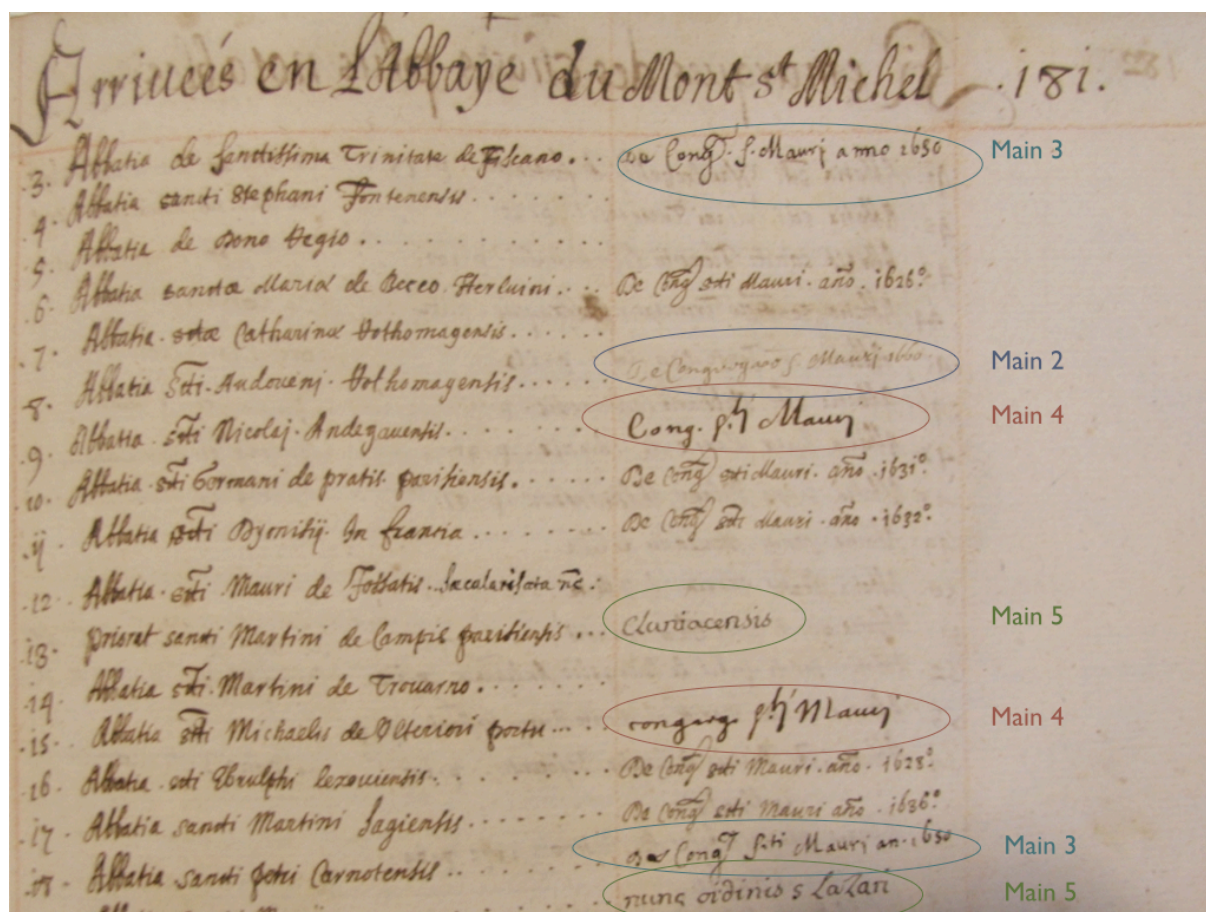 Arriuées en L'Abbaye du Mont st Michel .181.
.3. Abbatia de sanctissima Trinitate de Fiscano... De Cong. s. Mauri anno 1650 Main 3
4. Abbatia sancti Stephani Fontenensis.......
5. Abbatia de Bono Regio...........
6. Abbatia sanctæ Mariæ de Becco Herluini.... De Cong sti Mauri. año. 1626°. Main 2
7. Abbatia. stæ Catharinæ Rothomagensis......
8. Abbatia Sti. Audoeni. Rothomagensis...... s. Mauri 1660. Main 4
.9. Abbatia. sti Nicolaj. Andegauensis....... Cong. sti Mauri
.10. Abbatia. sti Germani de pratis. parisiensis...... De Cong sti Mauri. año. 1631°.
.11. Abbatia sti Dyonisij. In francia....... De Cong sti Mauri. año. 1632°.
.12. Abbatia. sti Mauri de Fossatis.. sæcularisata nc.
.13. priorat sancti Martini de Campis parisiensis... Cluniacensis Main 5
.14. Abbatia sti. Martini de Trouarno.......
.15. Abbatia sti Michaelis de Vlteriori portu..... congreg. sti Mauri Main 4
.16. Abbatia. sti Ebrulphi lexouiensis........ De Cong sti Mauri. año. 1628°.
.17. Abbatia sancti Martini Sagiensis......... De Cong sti Mauri año. 1636°.
.18. Abbatia sancti petri Carnotensis........ Cong S.ti Mauri an. 1650 Main 3
nunc ordinis s Lazari Main 5